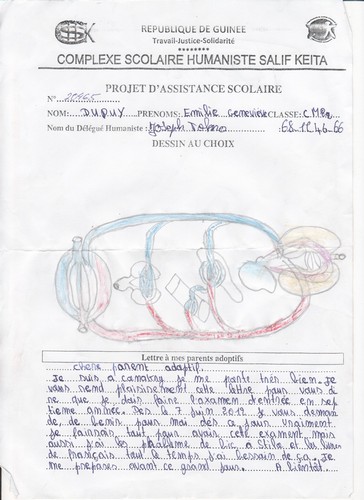 REPUBLIQUE DE GUINEE
Travail-Justice-Solidarité
********
COMPLEXE SCOLAIRE HUMANISTE SALIF KEITA
PROJET D'ASSISTANCE SCOLAIRE
N°
NOM: DUPUY PRENOMS: Emilie Genevieve CLASSE:
Nom du Délégué Humaniste : Joseph
DESSIN AU CHOIX
Lettre à mes parents adoptifs
chere parent adoptif
Je suis a conakry je me porte tres bien. Je
vous rend plaisirement cite lettre pour vous di
re que je dois faire l'axamen d'entrée en sep
tieme année. Des le 7 juin 2012 Je vous deman
de, de benir pour moi des a jour vraiment
je fairais tout pour avoir cete exament mais
aussi j'ai les plobleme de bic à stilo et les livres
de français tout le temps j'ai bessoin de ça. Je
me prepares avant ce grand jour. A bientot.